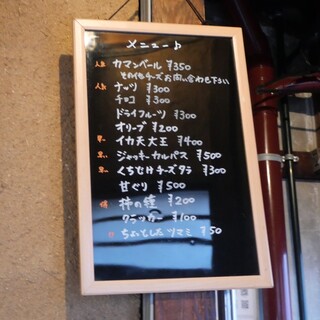 メニュー♪
人気 カマンベール ¥350
その他チーズお問い合わせ下さい
人気 ナッツ ¥300
チョコ ¥300
ドライフルーツ ¥300
オリーブ ¥200
イカ天大王 ¥400
ジャッキーカルパス ¥500
くちどけチーズタラ ¥300
甘ぐり ¥500
柿の種 ¥200
クラッカー ¥100
ちょっとしたツマミ ¥50